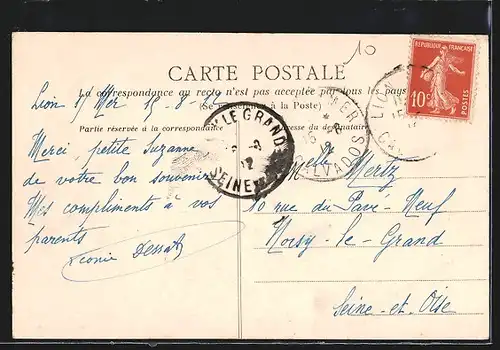 10
REPUBLIQUE FRANÇAISE
10c
POSTES
CARTE POSTALE
La correspondance au recto n'est pas acceptée par tous les pays
(Se renseigner à la Poste)
Partie réservée à la correspondance
Adresse du destinataire
Lion s/ Mer 15-8-
Merci, petite Suzanne
de votre bon souvenir
Mes compliments à vos
parents
Léonie
Melle Mertz
10 rue du Pavé-Neuf
Noisy-le-Grand
Seine-et-Oise
LE GRAND
SEINE
12
MER
CALVADOS
LION